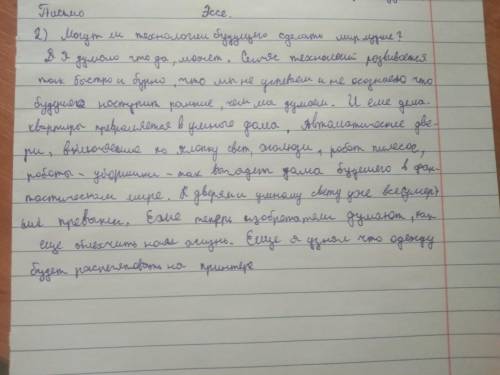 Письмо Эссе.
2) Могут ли технологии будущего сделать мир лучше?
Я думаю что да, может. Сейчас технологий развивается
так быстро и бурно, что мы не успеваем и не осознаем что
будущее наступит раньше, чем мы думаем. И еще дома
квартиры превращяется в умные дома, Автоматические две-
ри, включение по хлопку свет, жалюзи, робот пылесос,
роботы-уборщики - так выглядят дома будущего в фан-
тастическом мире. К дверями умному свету уже все
привыкли. Еще теперь изобретатели думают, как
еще облехчить наше жизнь. Еще я узнал что одежду
будет распечатовать на принтере